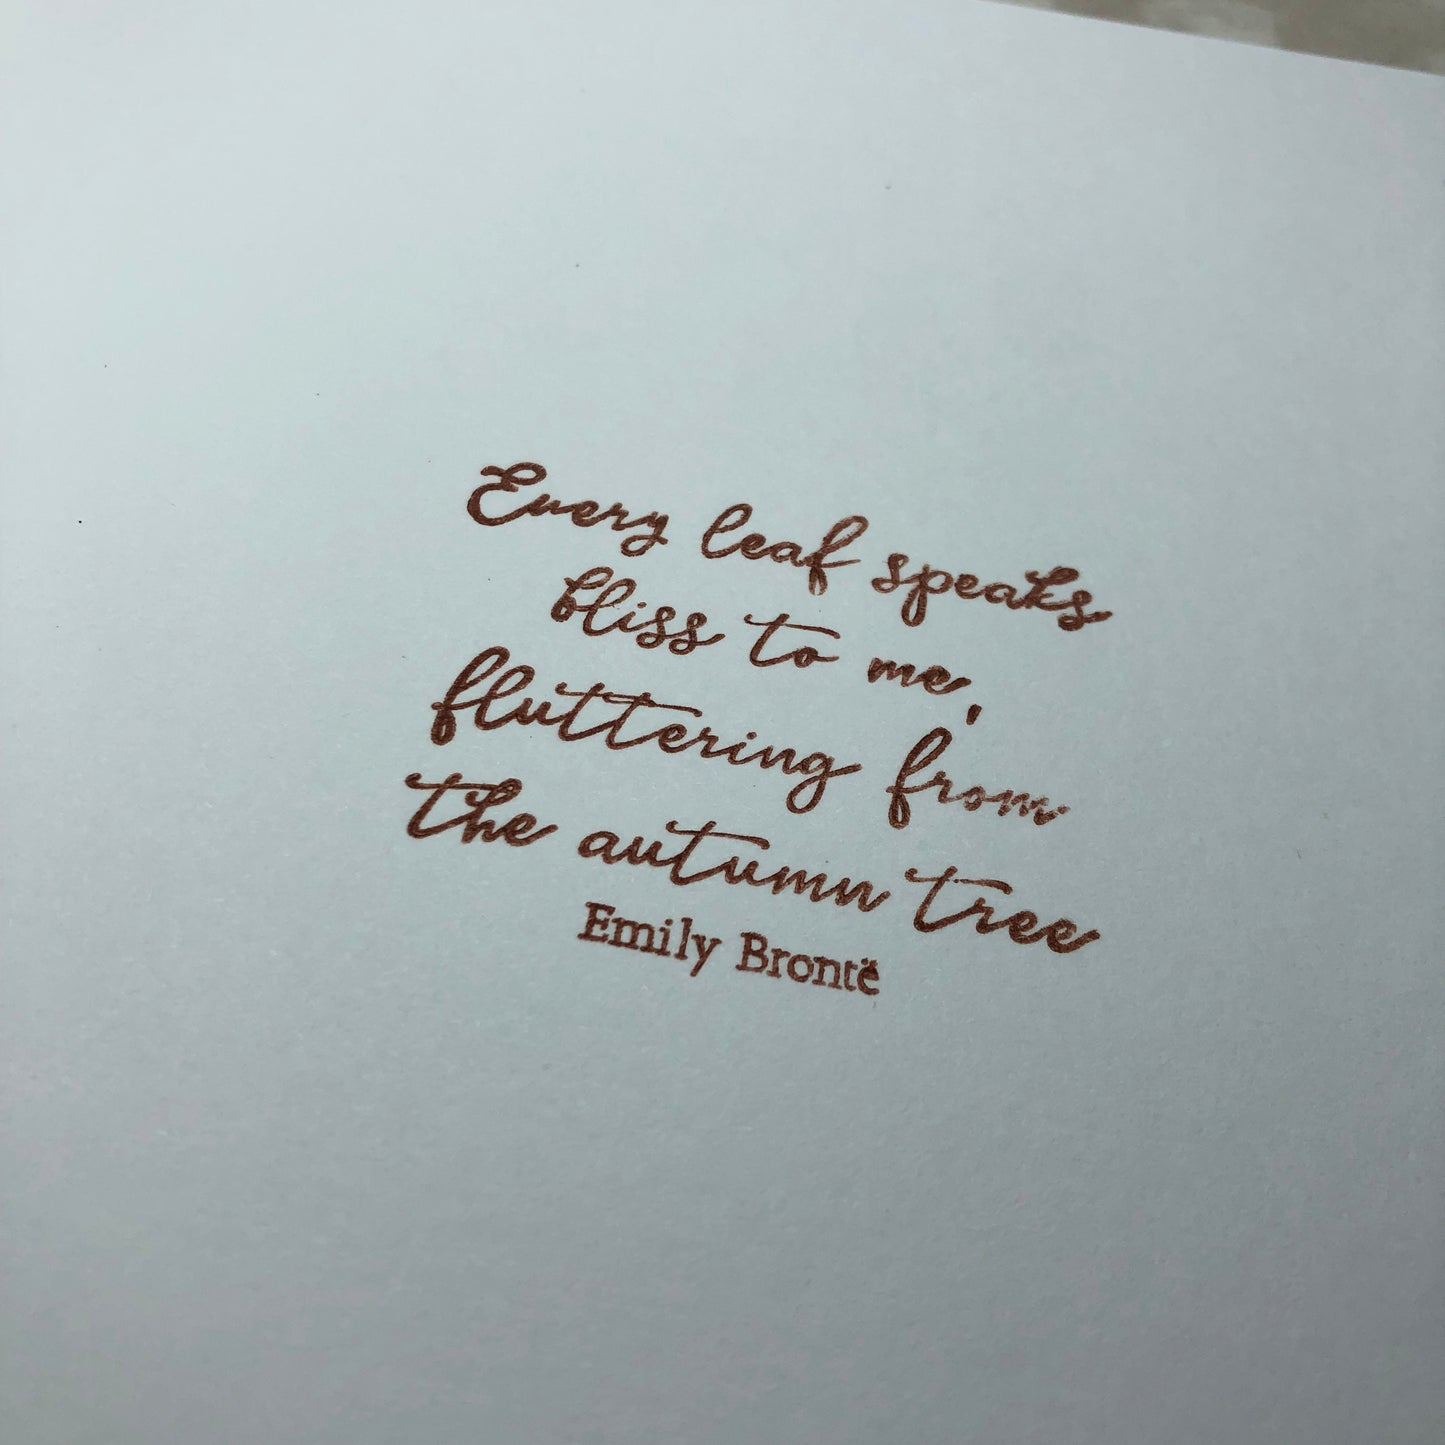 Every leaf speaks
bliss to me,
fluttering from
the autumn tree
Emily Brontë